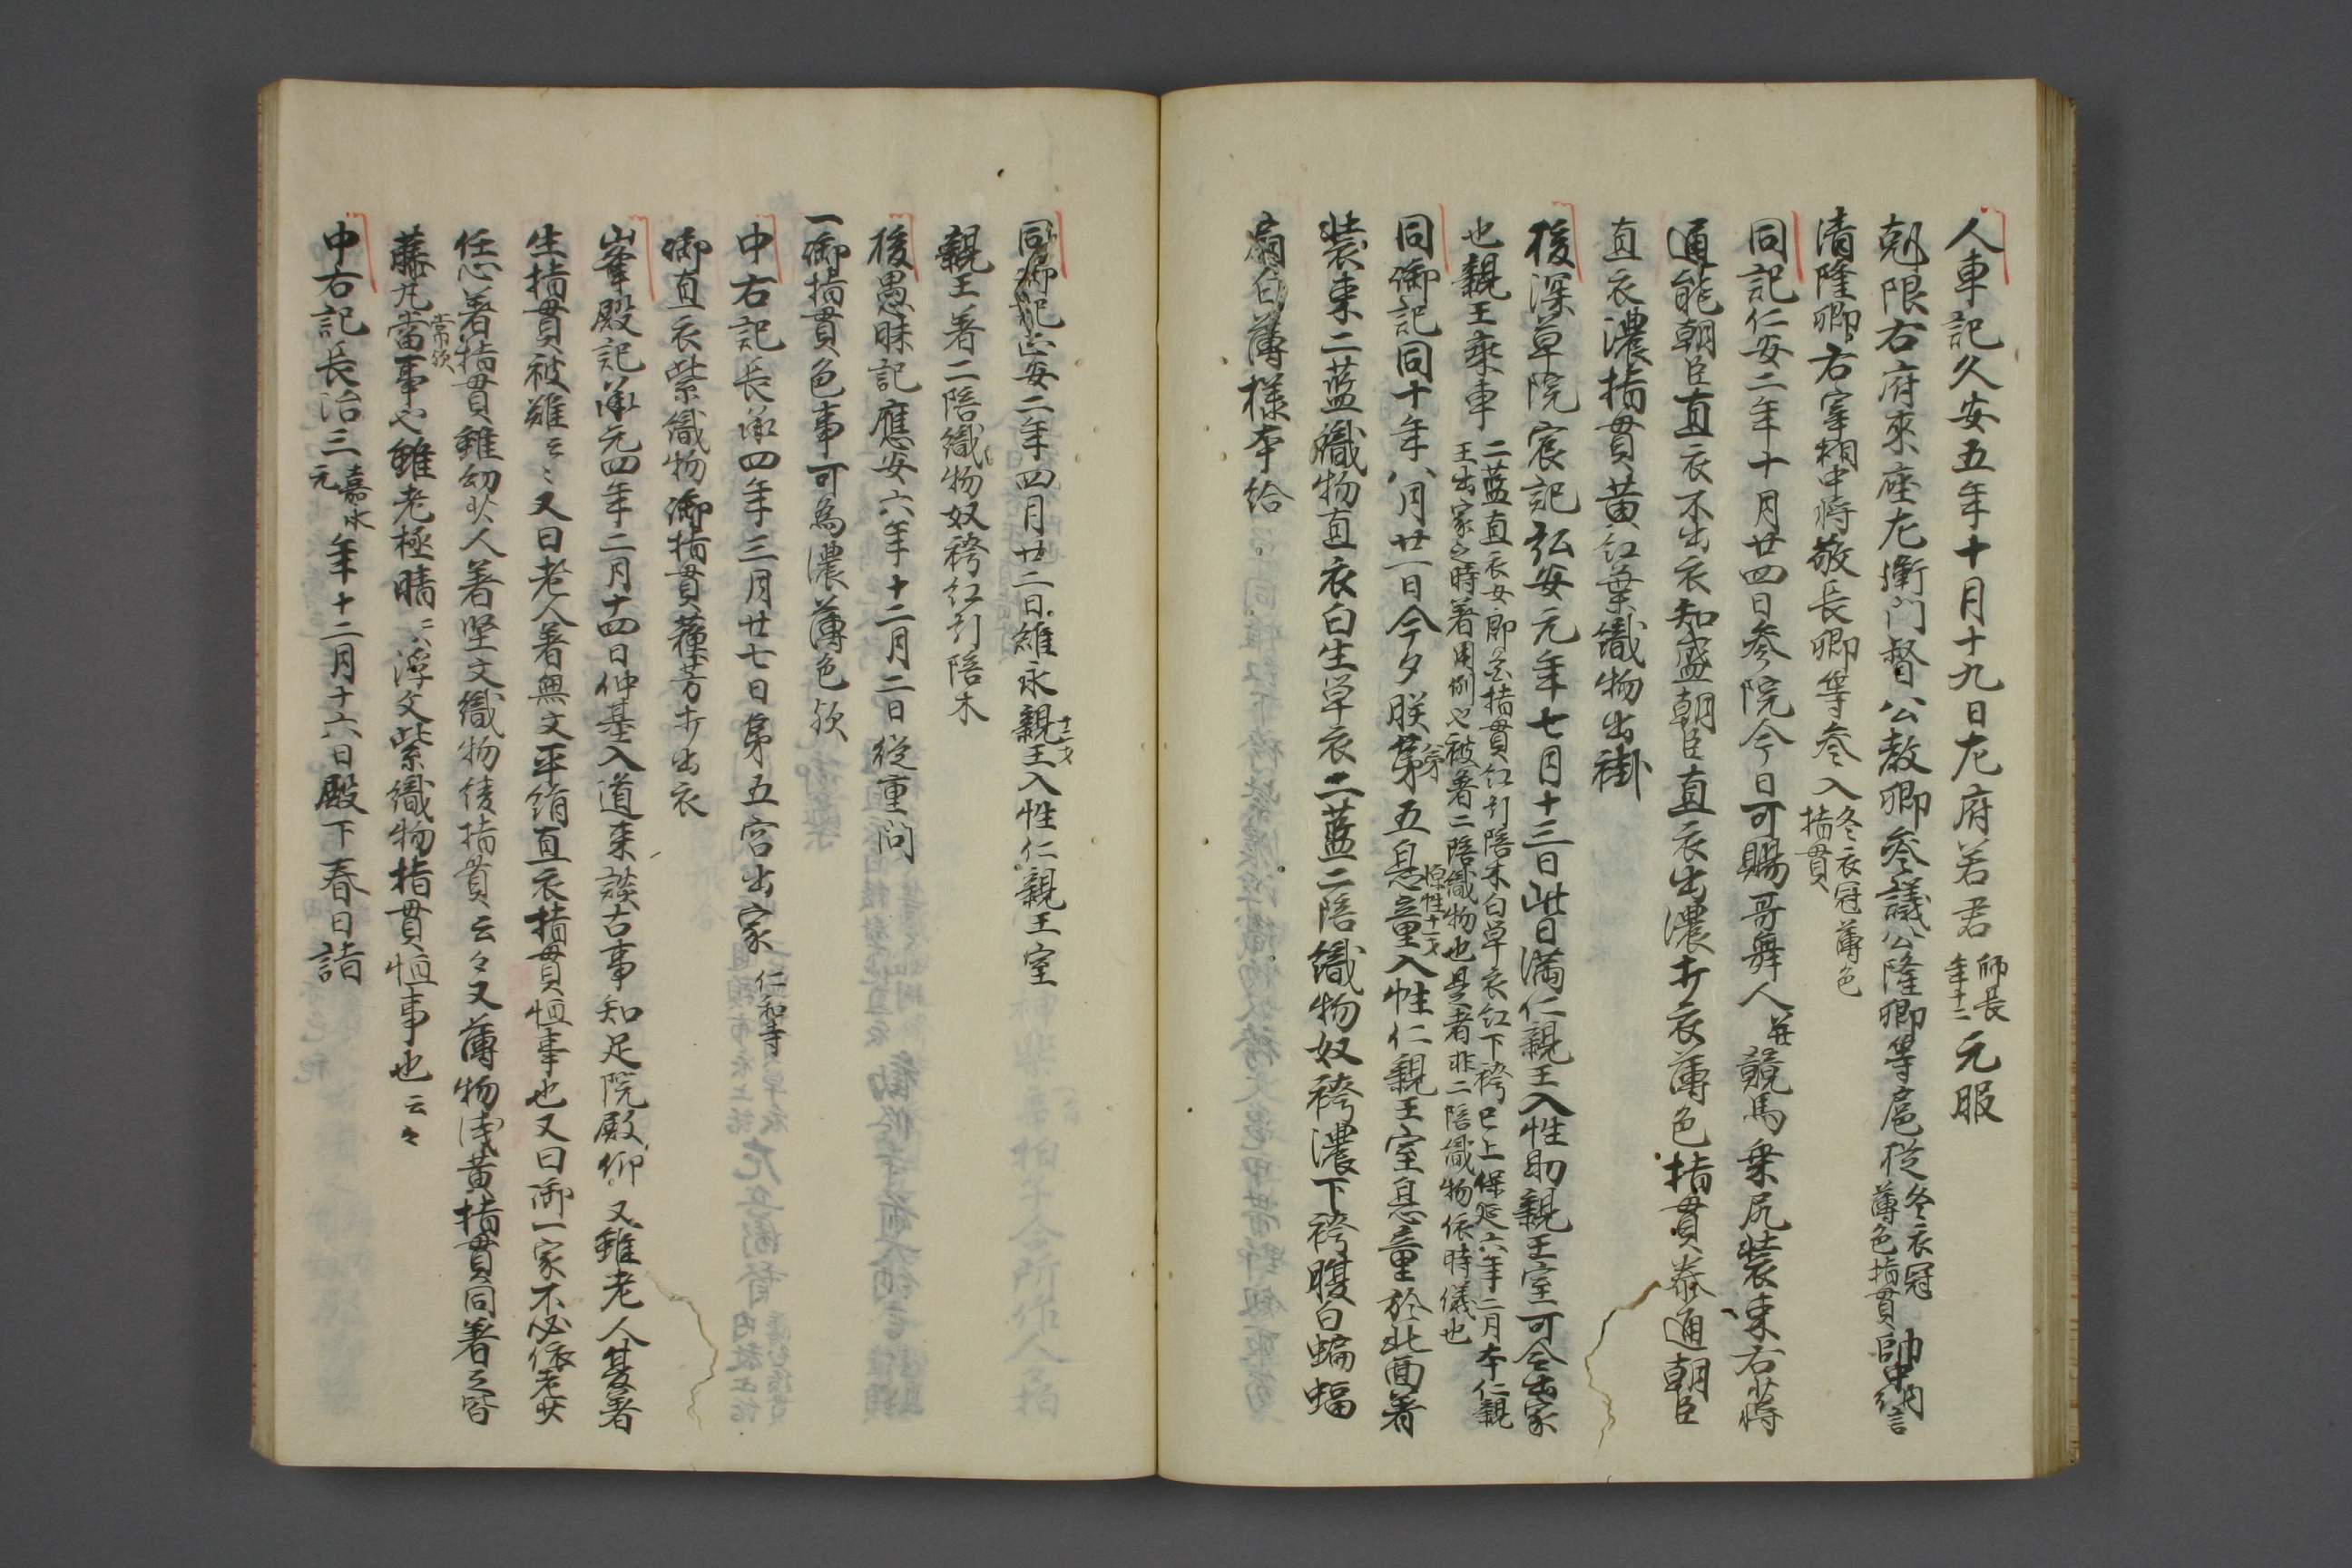 人車記久安五年十月十九日左府若君師長年十二元服
剋限右府来座左衛門督公教卿参議公隆卿等扈従冬衣冠薄色指貫帥中納言
清隆卿右宰相中将敬長卿等参入冬衣冠薄色指貫
同記仁安二年十月廿四日参院今日可賜哥舞人并競馬乗尻装束右将
通能朝臣直衣不出衣知盛朝臣直衣出濃打衣薄色指貫泰通朝臣
直衣濃指貫黄紅葉織物出褂
後深草院宸記弘安元年七月十三日此日満仁親王入性助親王室可令出家
也親王乗車二藍直衣女郎花指貫紅引陪木白単衣紅下袴已上保延六年二月本仁親王出家之時着用例也被着二陪織物也是者非二陪織物依時儀也
同御記同十年八月廿一日今夕朕第五息童入性仁親王室息童於北面著
装束二藍織物直衣白生単衣二藍二陪織物奴袴濃下袴腹白蝙蝠
扇白薄様本給
同御記正安二年四月廿二日維永親王十二才入性仁親王室
親王着二陪織物奴袴紅引陪木
後愚昧記應安六年十二月二日従重問
一御指貫色事可為濃薄色歟
中右記長承四年三月廿七日第五宮出家仁和寺
御直衣紫織物御指貫薄芳打出衣
峯殿記承元四年二月十四日仲基入道来談古事知足院殿仰又雖老人夏著
生指貫被難云々又曰老人著無文平絹直衣指貫恒事也又曰御一家不必依老少
任心著指貫雖幼少人著堅文織物綾指貫云々又薄物浅黄指貫同著之皆
藤丸當事也常歟雖老極晴ニハ浮文紫織物指貫恒事也云々
中右記長治三嘉承元年十二月十六日殿下春日詣